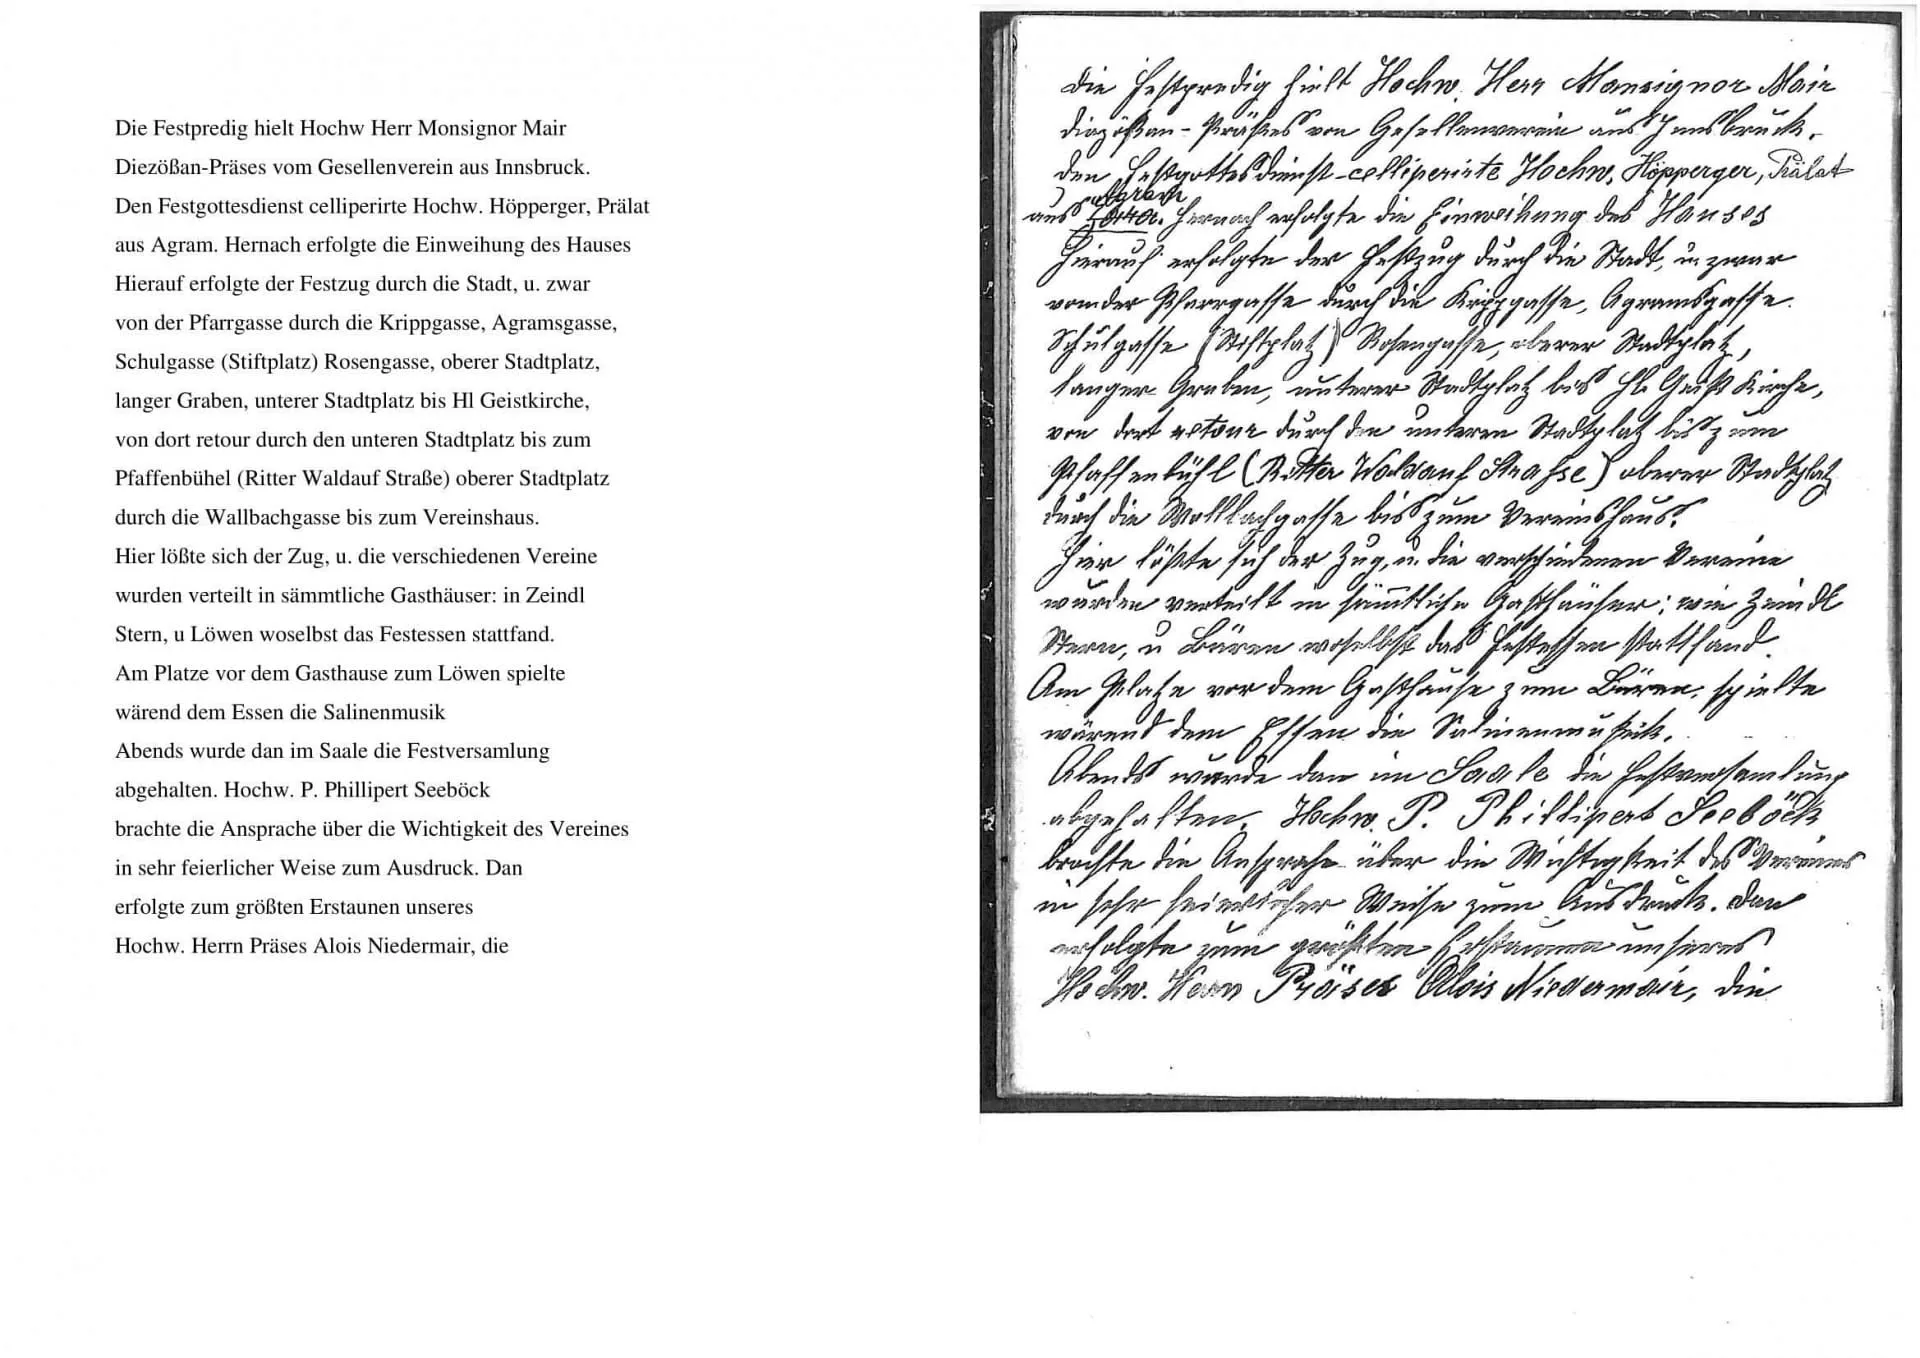 Die Festpredig hielt Hochw Herr Monsignor Mair
Diezößan-Präses vom Gesellenverein aus Innsbruck.
Den Festgottesdienst celliperirte Hochw. Höpperger, Prälat
aus Agram. Hernach erfolgte die Einweihung des Hauses
Hierauf erfolgte der Festzug durch die Stadt, u. zwar
von der Pfarrgasse durch die Krippgasse, Agramsgasse,
Schulgasse (Stiftplatz) Rosengasse, oberer Stadtplatz,
langer Graben, unterer Stadtplatz bis Hl Geistkirche,
von dort retour durch den unteren Stadtplatz bis zum
Pfaffenbühel (Ritter Waldauf Straße) oberer Stadtplatz
durch die Wallbachgasse bis zum Vereinshaus.
Hier lößte sich der Zug, u. die verschiedenen Vereine
wurden verteilt in sämmtliche Gasthäuser: in Zeindl
Stern, u Löwen woselbst das Festessen stattfand.
Am Platze vor dem Gasthause zum Löwen spielte
wärend dem Essen die Salinenmusik
Abends wurde dan im Saale die Festversamlung
abgehalten. Hochw. P. Phillipert Seeböck
brachte die Ansprache über die Wichtigkeit des Vereines
in sehr feierlicher Weise zum Ausdruck. Dan
erfolgte zum größten Erstaunen unseres
Hochw. Herrn Präses Alois Niedermair, die
Die Festpredig hielt Hochw. Herr Monsignor Mair
Diezößan-Präßes von Gesellenverein aus Innsbruck.
den Festgottesdienst celliperirte Hochw. Höpperger, Prälat
aus Agram. Hernach erfolgte die Einweihung des Hauses
Hierauf erfolgte der Festzug durch die Stadt, u. zwar
von der Pfarrgasse durch die Krippgasse, Agramsgasse.
Schulgasse (Stiftplatz) Rosengasse, oberer Stadtplatz,
langer Graben, unterer Stadtplatz bis Hl. Geist Kirche,
von dort retour durch den unteren Stadtplatz bis zum
Pfaffenbühl (Ritter Waldauf Strasse) oberer Stadtplatz
durch die Wallbachgasse bis zum Vereinshaus.
Hier lößte sich der Zug, u. die verschiedenen Vereine
wurden verteilt in sämtliche Gasthäuser; wie Zeindl
Stern, u Bären woselbst das Festessen stattfand.
Am Platze vor dem Gasthause zum Bären, spielte
wärend dem Essen die Salinenmusik.
Abends wurde dan im Saale die Festversamlung
abgehalten. Hochw. P. Phillipert Seeböck
brachte die Ansprache über die Wichtigkeit des Vereines
in sehr feierlicher Weise zum Ausdruck. Dan
erfolgte zum größten Erstaunen unseres
Hochw. Herrn Präses Alois Niedermair, die